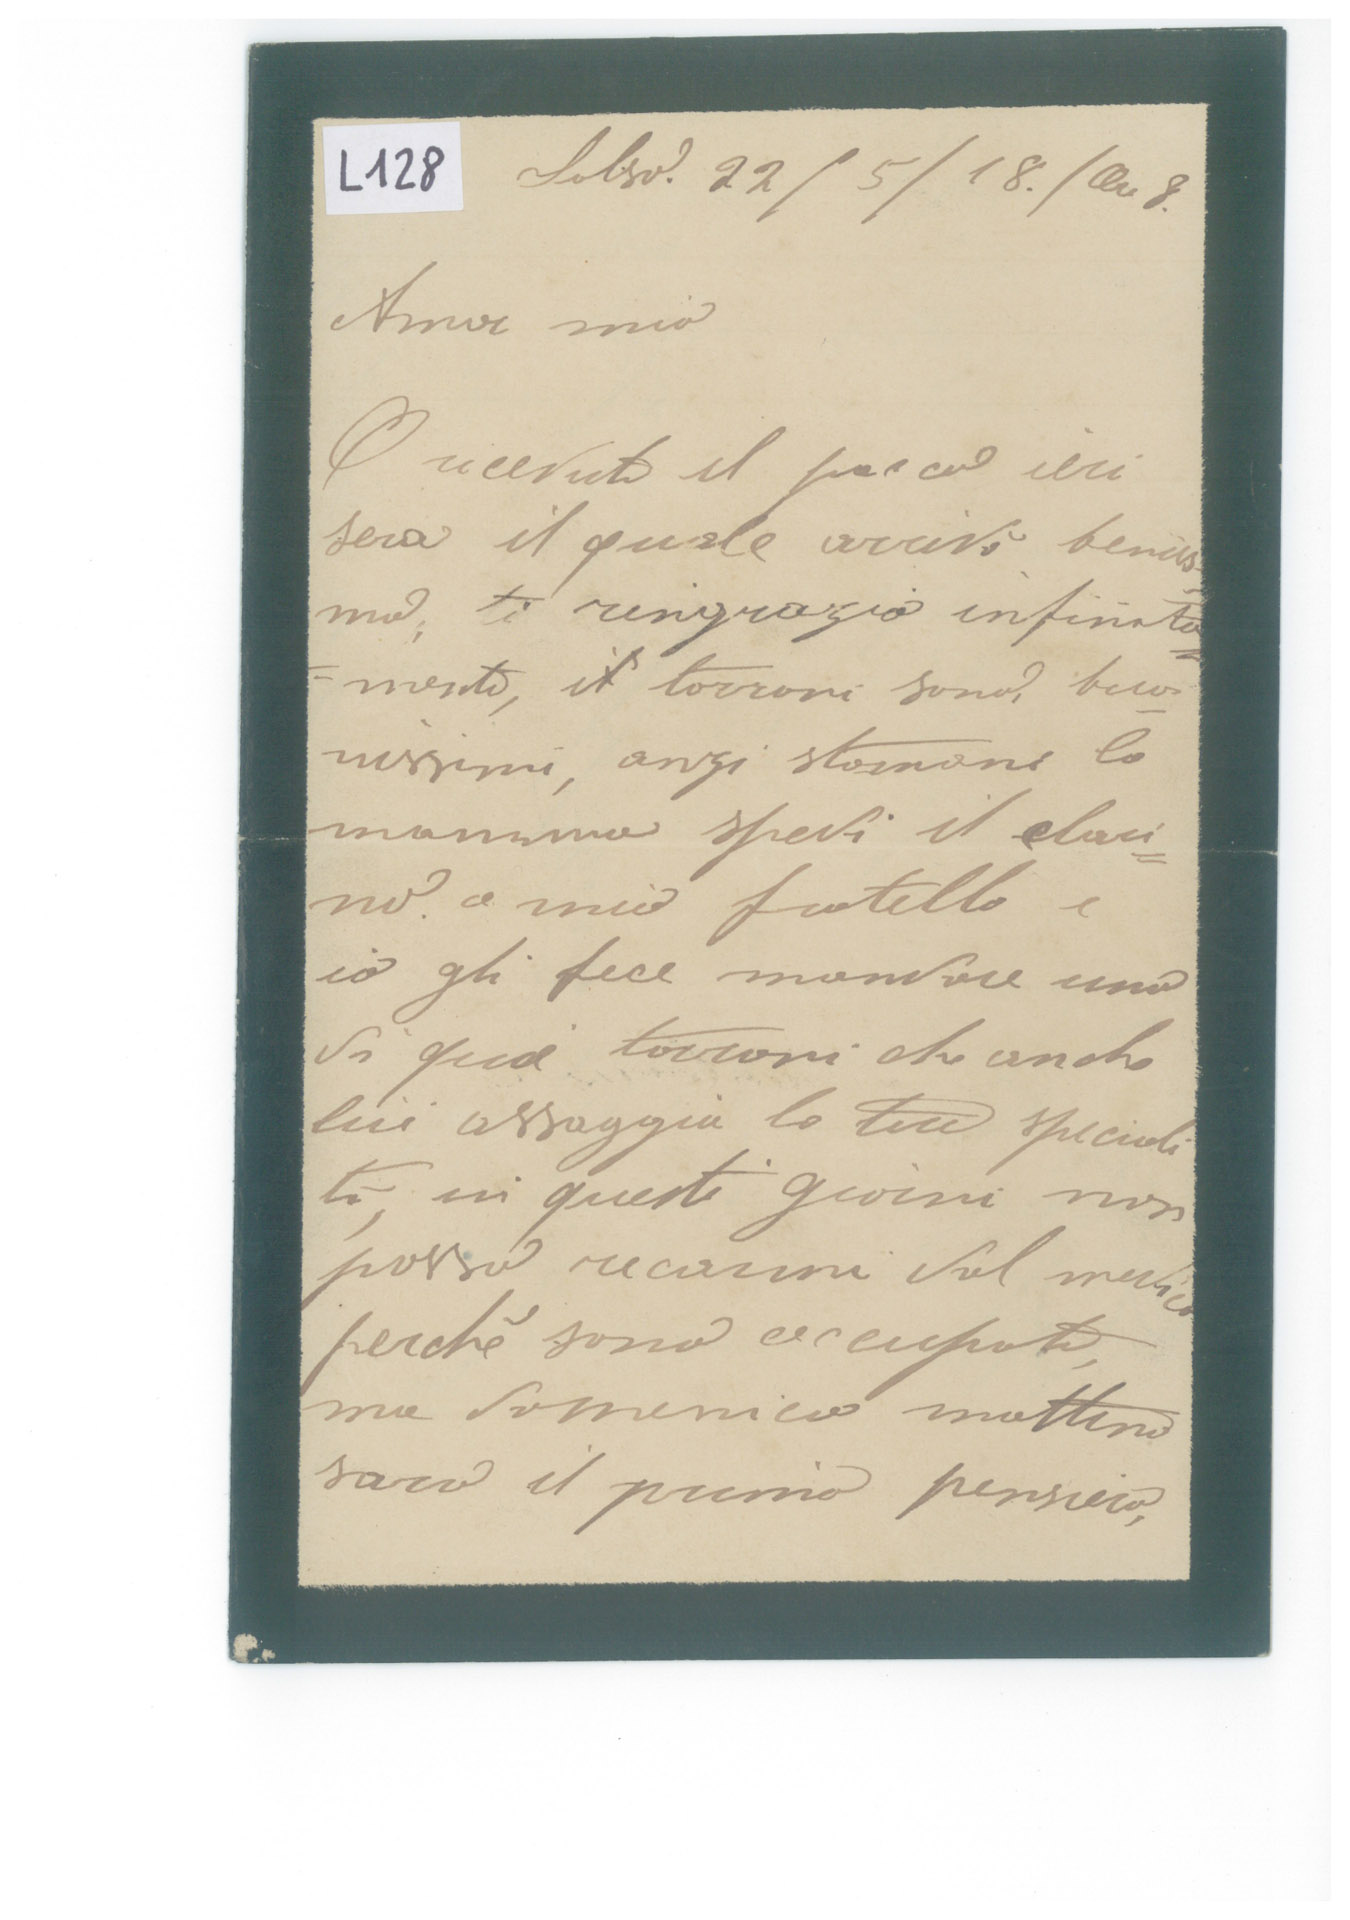 L128
22/5/18./Ore 8.
Amor mio
O ricevuto il pacco ieri
sera il quale arrivò beniss-
mo, ti ringrazio infinita
=mente, i torroni sono, buo-
nissimi, anzi stamani la
mamma spedì il
no. a mio fratello e
io gli fece mandare uno
di quei torroni che anche
lui assaggia la tua speciali
tà, in questi giorni non
posso recarmi dal medico
perchè sono occupato,
ma domenica mattina
sarà il primo pensiero,